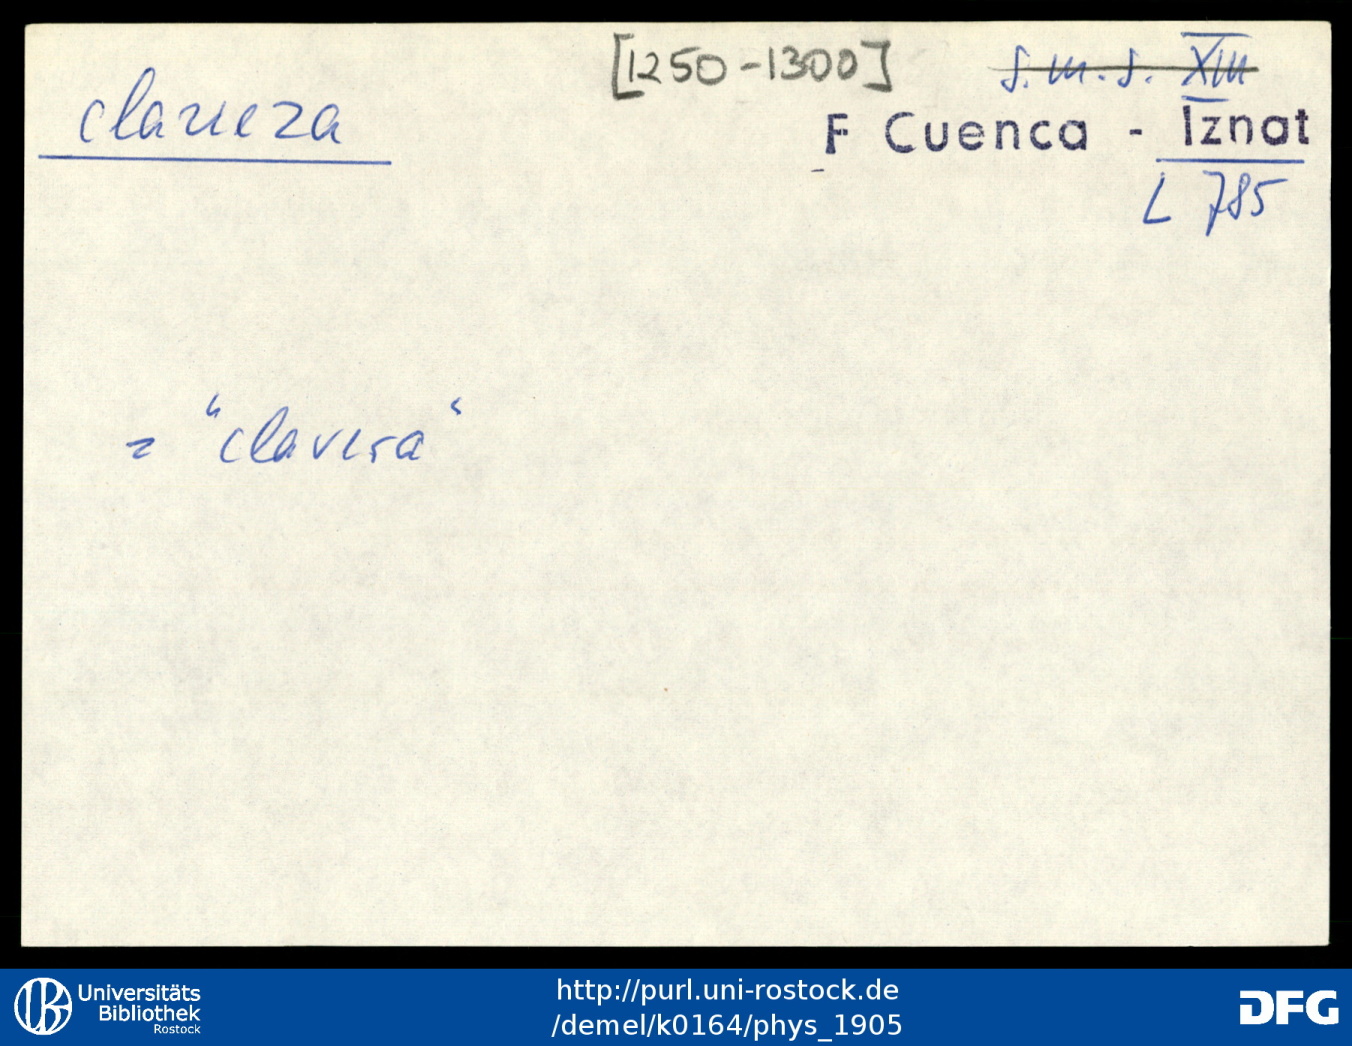 [1250-1300] s.m.s. XIII
clauera
F Cuenca - Iznat
L 785
= "clavera"
Universitäts
Bibliothek
Rostock
http://purl.uni-rostock.de
/demel/k0164/phys_1905
DFG